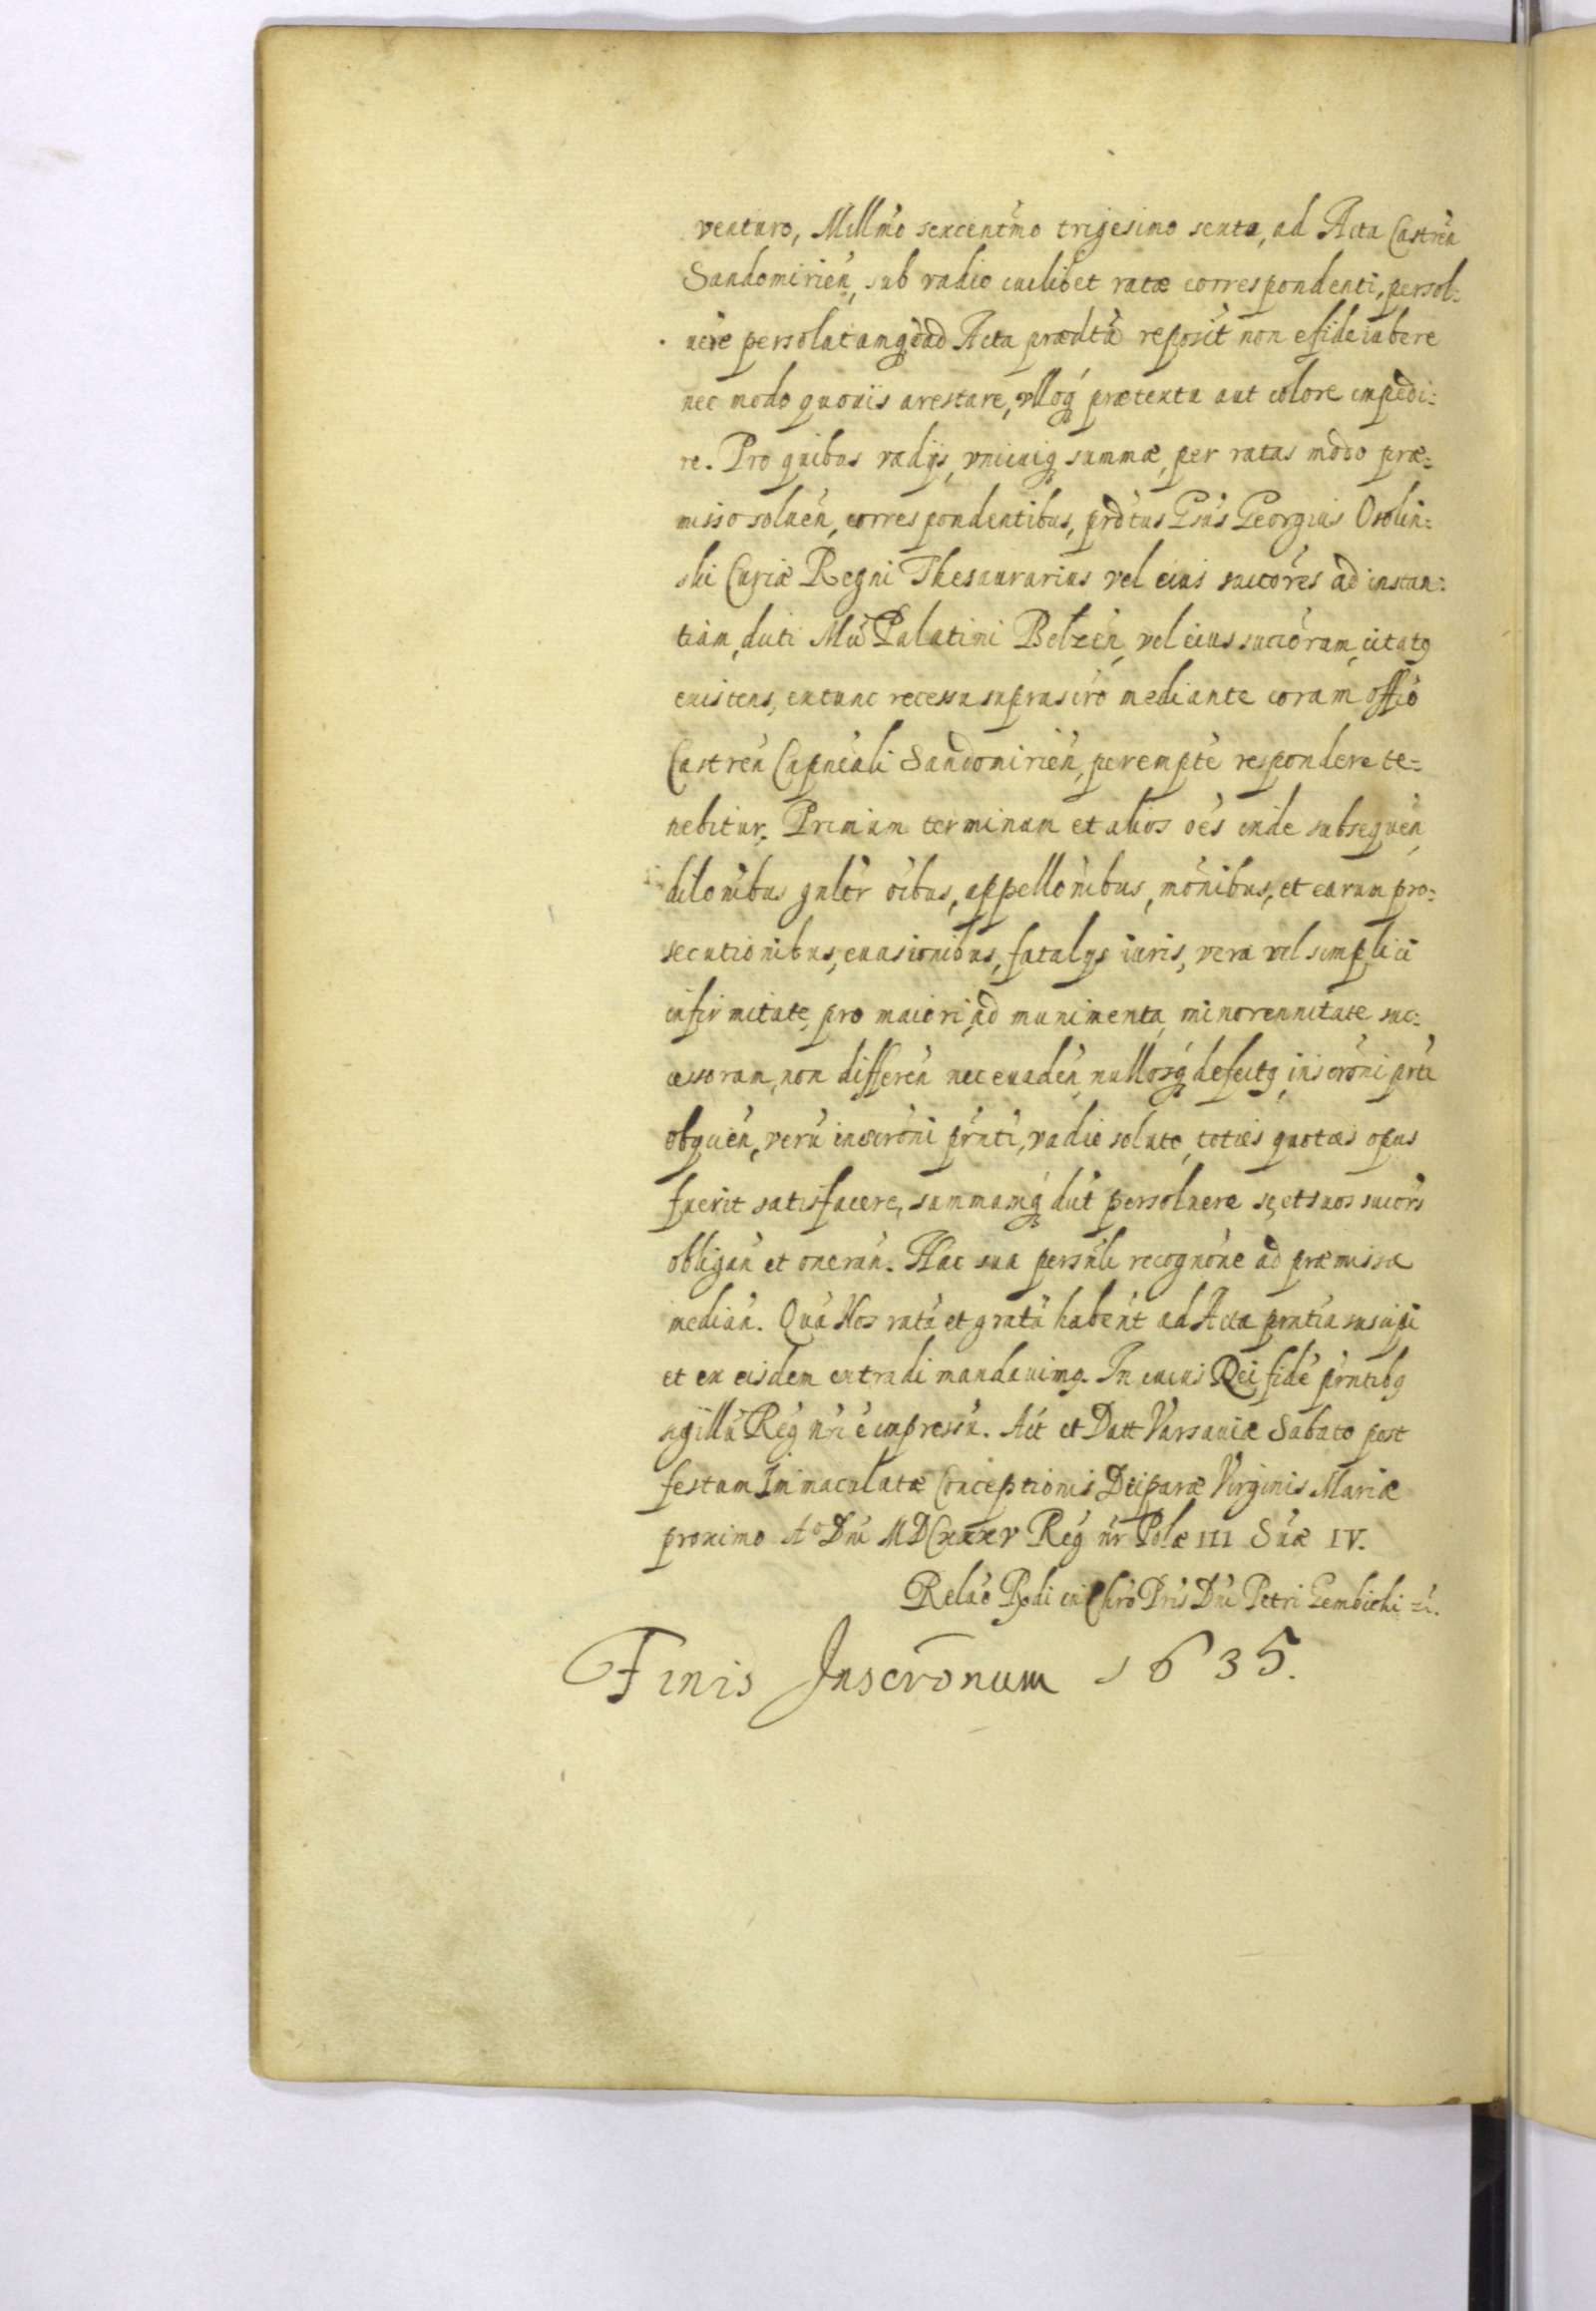 venturo, Millm̃o sexcentm̃o trigesimo sexto, ad Acta Castreñ
Sandomirieñ, sub vadio cuilibet ratæ correspondenti, persol:
uere persolutamq̃ ad Acta prædtã reposit̃ non efideiubere
nec modo quouis arestare, vlloq́ prætextu aut colore impedi:
re. Pro quibus vadijs, vnicuiq summæ, per ratas modo præ:
misso solueñ, correspondentibus, prdtus Gsũs Georgius Osolin:
ski Curiæ Regni Thesaurarius vel eius succores ad instan:
tiam, dicti Mci Palatini Belzeñ, vel eius succorum, citatq
existens, extunc recessu suprascro mediante coram offio
Castreñ Capneali Sandomirieñ, perempte respondere te=
nebitur. Primum terminum et alios oẽs inde subsequeñ,
dilonibus gnlr oĩbus, appellonibus, mõnibus, et earum pro:
secutionibus, euasionibus, fatalijs iuris, vera vel simplici
infirmitate, pro maiori, ad munimenta, minorennitate suc:
cessorum, non differeñ nec euadeñ, nullosq́ defectq, inscroni prti
obycieñ, verũ inscroni prnti, vadio soluto, toties quoties opus
fuerit satisfacere, summamq́ dict persoluere se, et suos succors
obligañ et onerañ. Hac sua persnli recognone ad præmissa
mediañ. Quã Nos ratã et gratã habent̃ ad Acta prntia suscipi
et ex eisdem extradi mandauimq. In cuius Rei fidẽ prntibq
sigillũ Reg nri ẽ impressũ. Act et Datt Varsauiæ Sabato post
festum Immaculatæ Conceptionis Deiparæ Virginis Mariæ
proximo Aº Dni MDCxxxv Reg nr Polæ III Suæ IV.
Relao Rxdi in Chro Pris Dni Petri Gembicki
Finis Inscronum 1635.